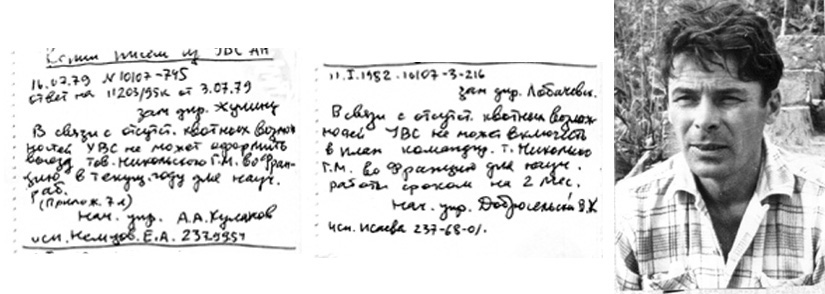 Копии писем из УВС АН
16.07.79 N 10107-745
ответ на 11203/95к от 3.07.79
зам дир. Жулину
В связи с отсутст. квотных возмож
ностей УВС не может оформить
выезд тов. Никольского Г.М. во Фран-
цию в текущ. году для науч.
раб.
(Прилож. 7 л)
Нач. упр. А.А. Кулаков
исп. Немцов. Е.А. 2379951
11.I.1982. 10107-3-216
зам дир. Лобачевы.
В связи с отсутст. квотных возмож
ностей УВС не может включить
в план командир. т. Никольского
Г.М. во Францию для науч.
работы сроком на 2 мес.
Нач. упр. Добросельский В.К
исп. Исаева 237-68-01.